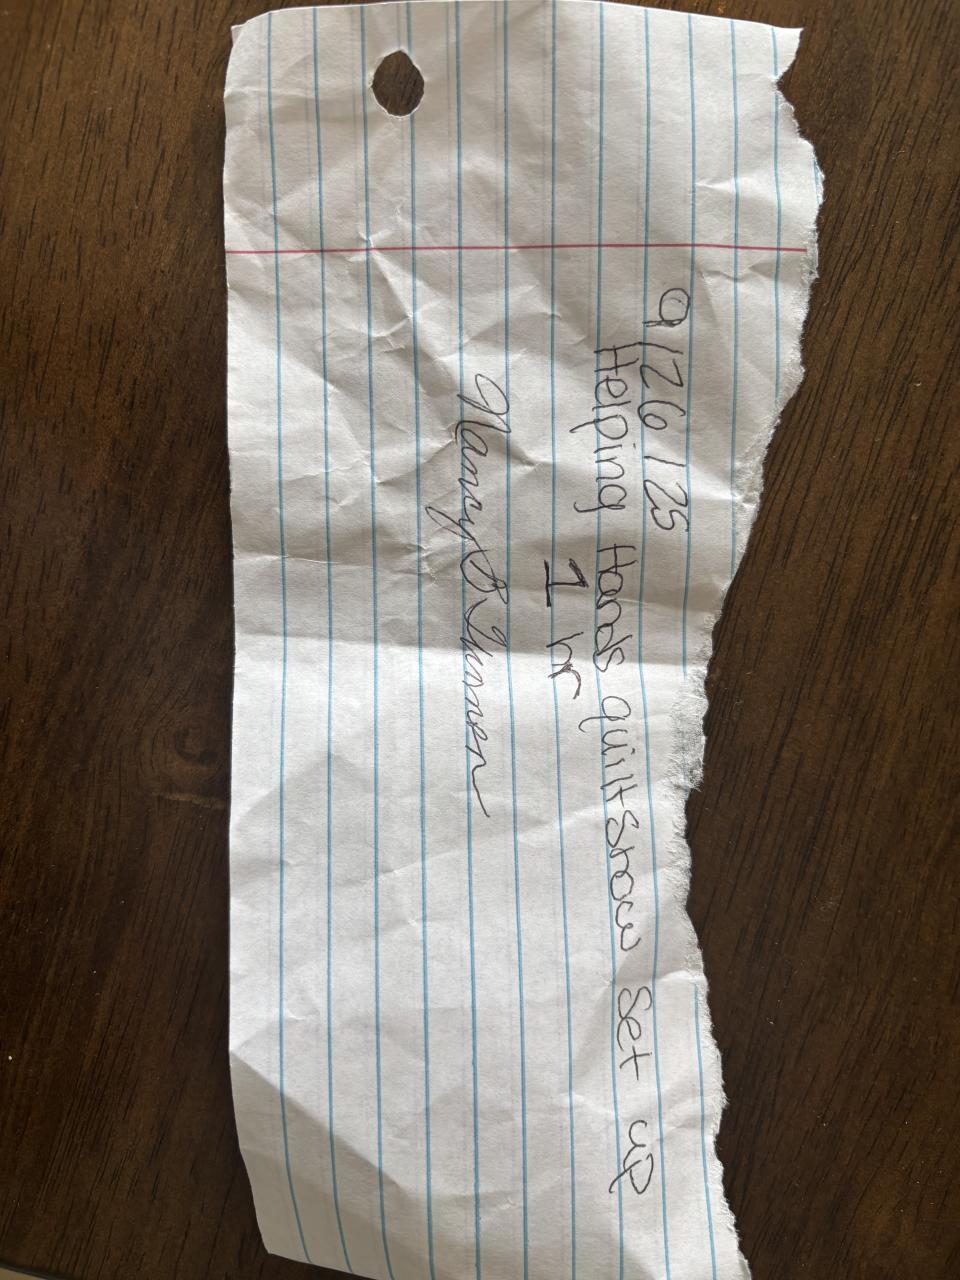 9/26/25
Helping Hands quiltshow set up
1 hr
Nancy